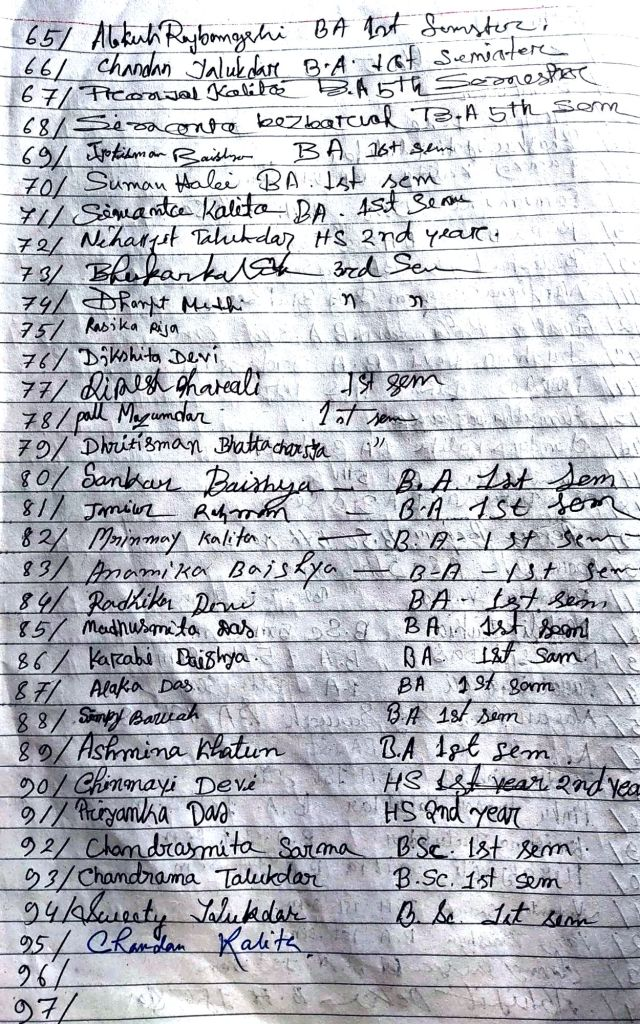 65/ Rajbongshi BA 1st Semster.
66/ Chandan Talukdar B.A. 1st Semister
67/ Kalita B.A 5th Semester
68/ bezbaruah B.A 5th Sem
69/ Baishya BA 1st sem
70/ Suman Haloi BA 1st sem
71/ Simanta Kalita BA. 1st Sem
72/ Niharjit Talukdar HS 2nd year.
73/ 3rd Sem
74/ " "
75/ Rasika
76/ Dikshita Devi
77/ 1st sem
78/ Mazumdar 1st sem
79/ Dhritisman Bhattacharjya "
80/ Sankar Baishya - B.A 1st Sem
81/ Rahman - B.A 1st sem
82/ Mrinmay Kalita - B.A - 1st sem
83/ Anamika Baishya - B-A - 1st sem
84/ Radhika Devi BA. 1st sem
85/ Madhusmita Das BA 1st sem
86/ Karabi Baishya. BA. 1st Sam.
87/ Alaka Das. BA 1st sem
88/ Simpy Baruah B.A 1st sem
89/ Ashmina Khatun B.A 1st sem.
90/ Chinmayi Devi HS 1st year 2nd yea
91/ Priyanka Das HS 2nd year
92/ Chandrasmita Sarma B.Sc. 1st sem.
93/ Chandrama Talukdar B.Sc. 1st sem
94/ Sweety Talukdar B.Sc. 1st sem
95/ Chandan Kalita
96/
97/